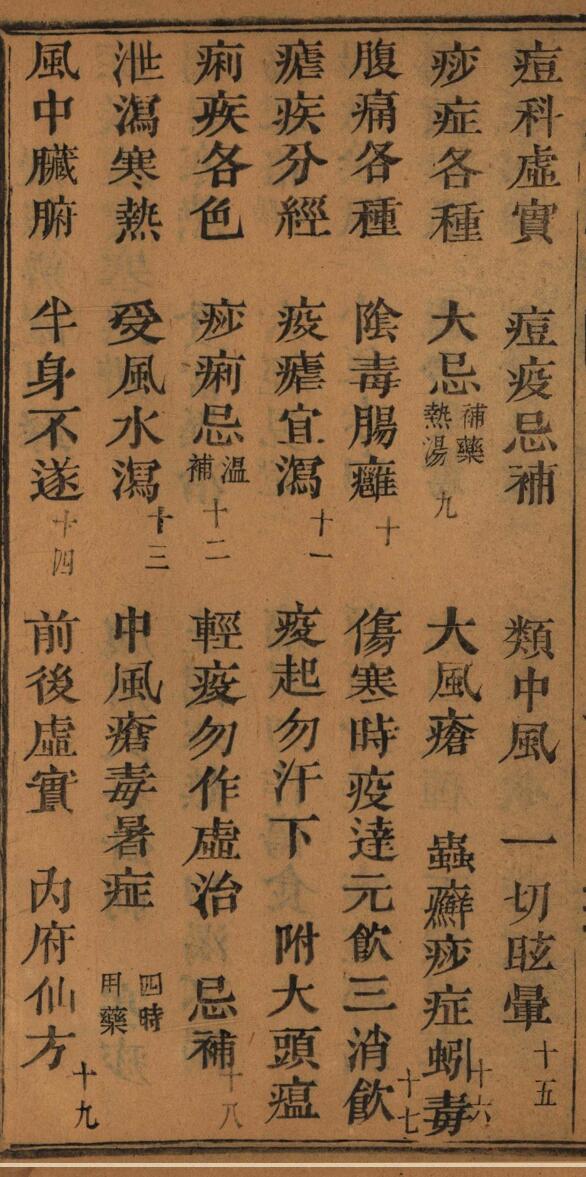 痘科虛實 痘疫忌補 類中風 一切眩暈 十五
痧症各種 大忌補藥熱湯 九 大風瘡 蟲癬痧症蚓毒 十六
腹痛各種 陰毒腸癰 十 傷寒時疫達元飲三消飲 十七
瘧疾分經 疫瘧宜瀉 十一 疫起勿汗下 附大頭瘟
痢疾各色 痧痢忌溫補 十二 輕疫勿作虛治 忌補 十八
泄瀉寒熱 受風水瀉 十三 中風瘡毒暑症 四時用藥
風中臟腑 半身不遂 十四 前後虛實 內府仙方 十九